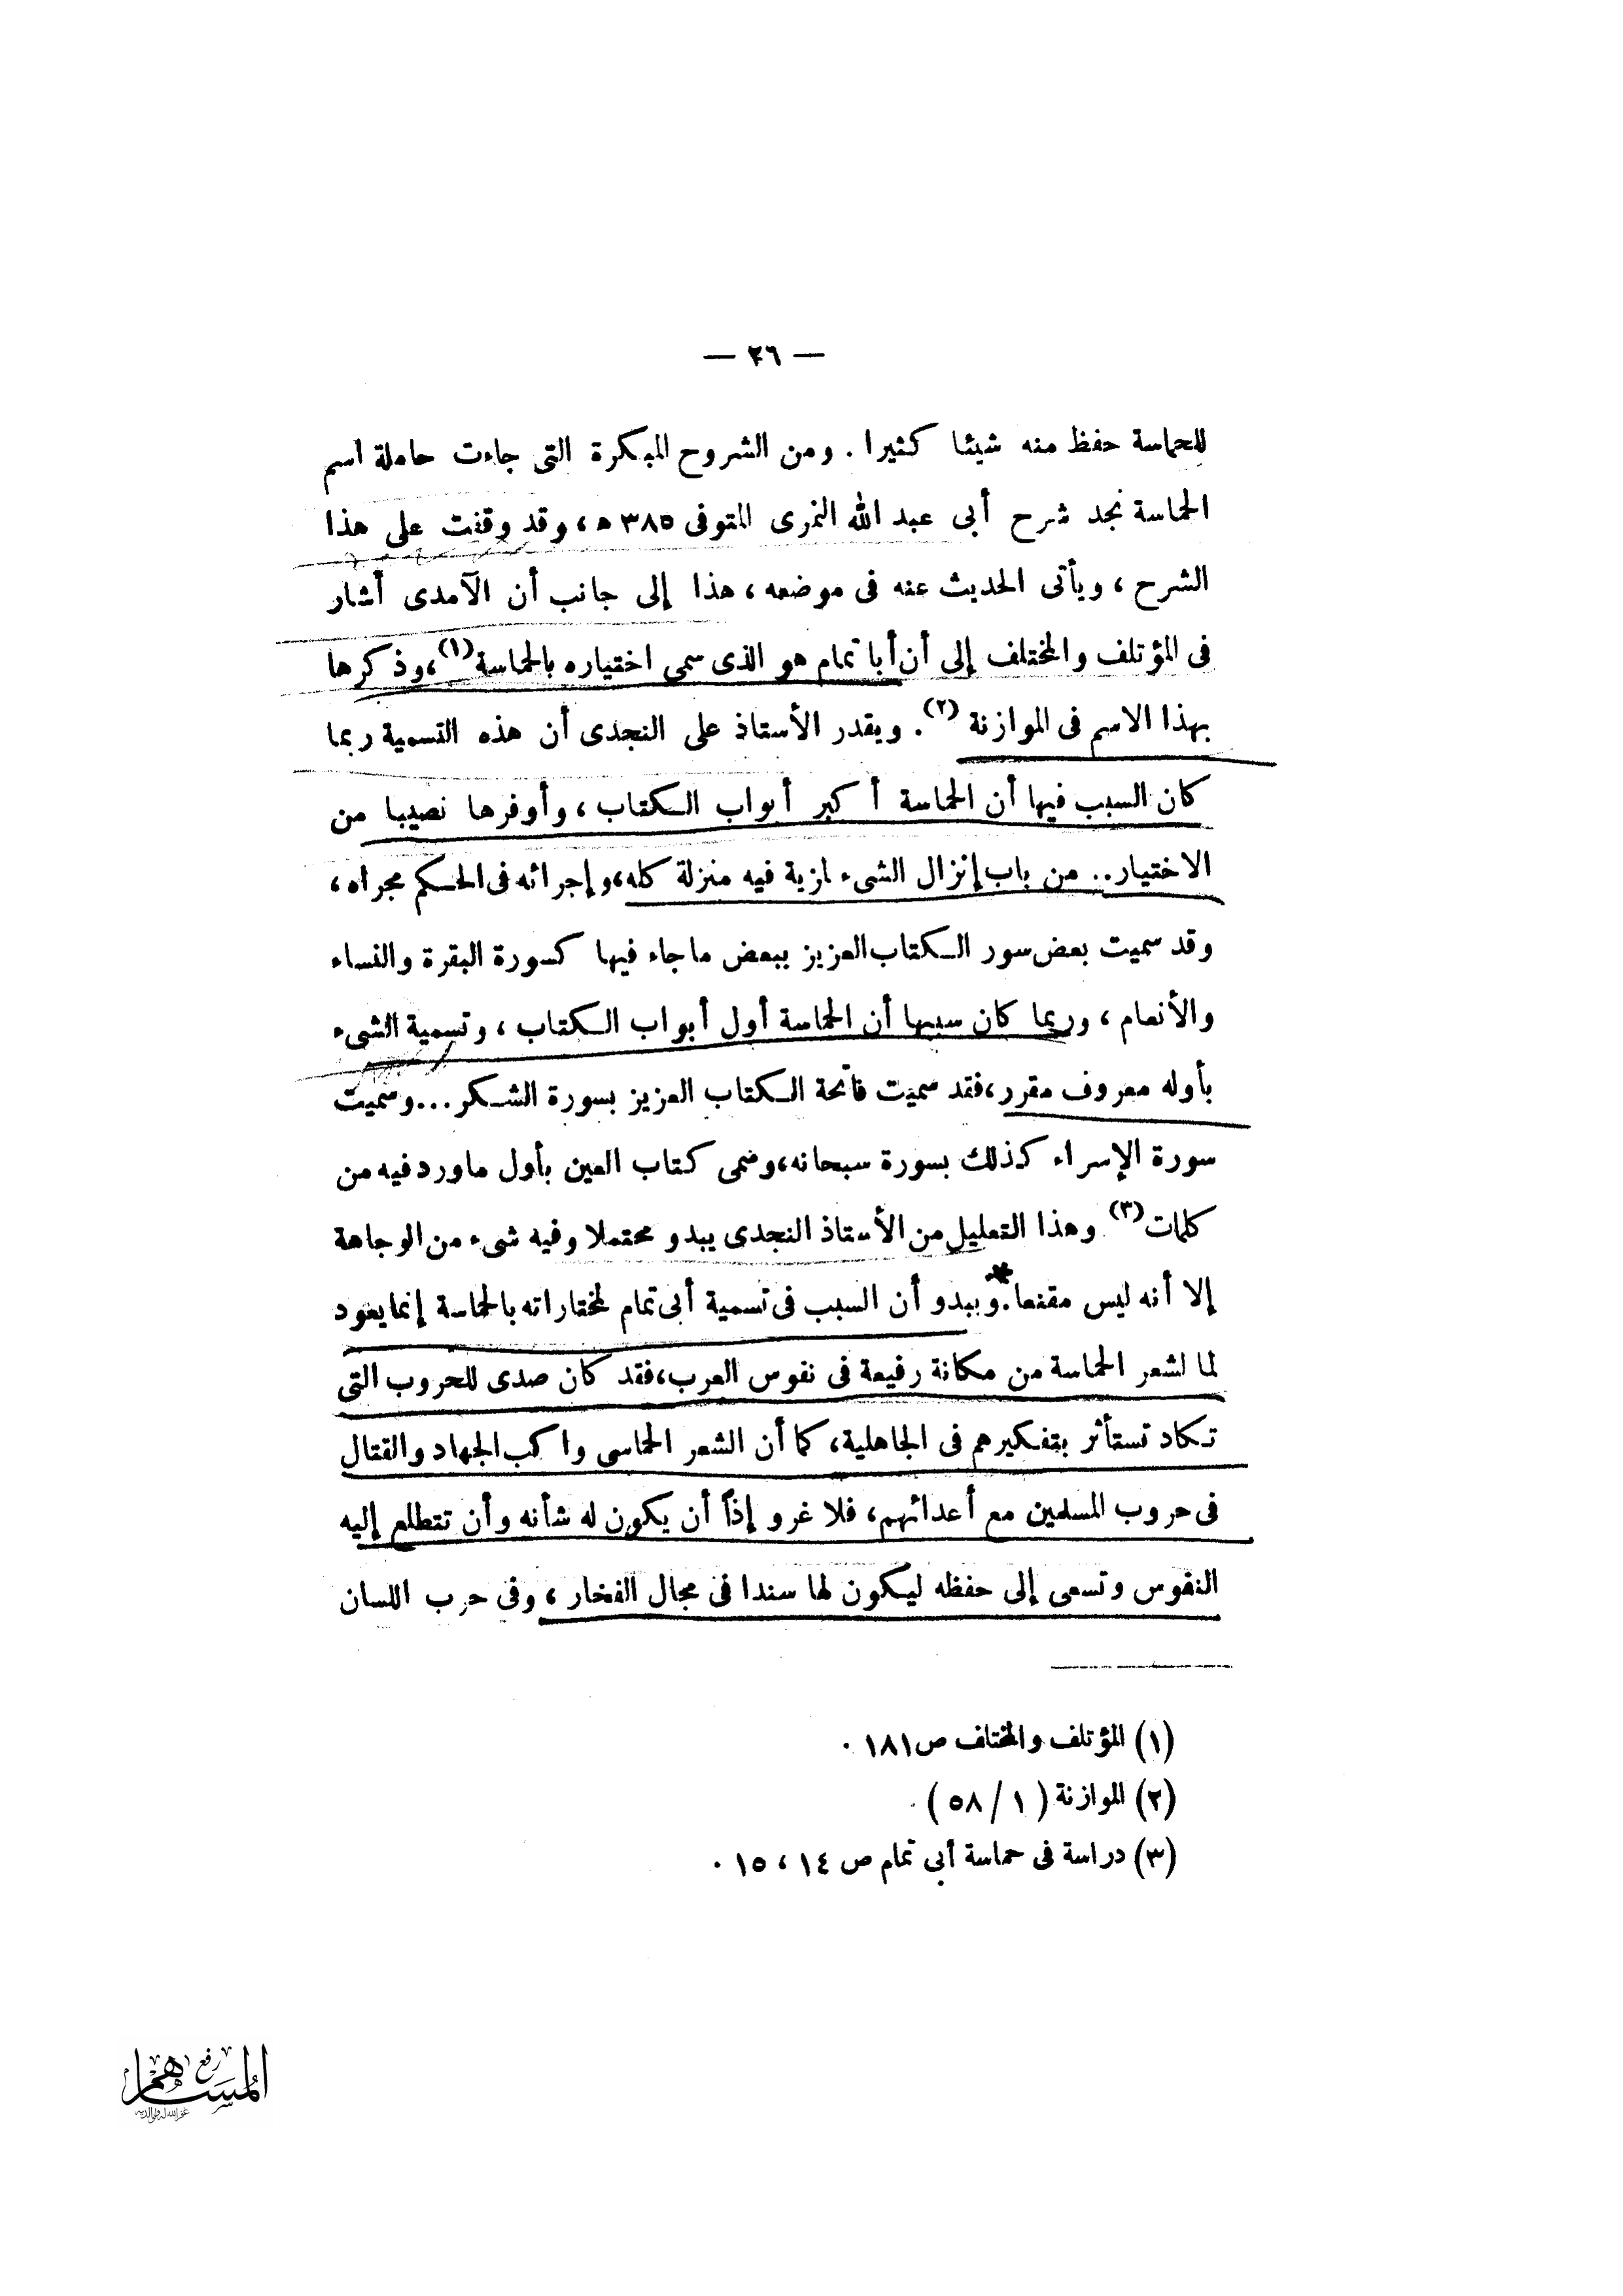 — ٢٦ —
للحماسة حفظ منه شيئا كثيرا . ومن الشروح المبكرة التى جاءت حاملة اسم
الحماسة نجد شرح أبى عبد الله النمرى المتوفى ٣٨٥ ه ، وقد وقفت على هذا
الشرح ، ويأتى الحديث عنه فى موضعه ، هذا إلى جانب أن الآمدى أشار
فى المؤتلف والمختلف إلى أن أبا تمام هو الذى سمى اختياره بالحماسة (١) ، وذكرها
بهذا الاسم فى الموازنة (٢) . ويقدر الأستاذ على النجدى أن هذه التسمية ربما
كان السبب فيها أن الحماسة أكبر أبواب الكتاب ، وأوفرها نصيبا من
الاختيار .. من باب إنزال الشىء لمزية فيه منزلة كله ، وإجرائه فى الحكم مجراه ،
وقد سميت بعض سور الكتاب العزيز ببعض ما جاء فيها كسورة البقرة والنساء
والأنعام ، وربما كان سببها أن الحماسة أول أبواب الكتاب ، وتسمية الشىء
بأوله معروف مقرر ، فقد سميت فاتحة الكتاب العزيز بسورة الشكر ... وسميت
سورة الإسراء كذلك بسورة سبحانه ، وسمى كتاب العين بأول ما ورد فيه من
كلمات (٣) وهذا التعليل من الأستاذ النجدى يبدو محتملا وفيه شىء من الوجاهة
إلا أنه ليس مقنعا . ويبدو أن السبب فى تسمية أبى تمام لمختاراته بالحماسة إنما يعود
لما لشعر الحماسة من مكانة رفيعة فى نفوس العرب ، فقد كان صدى للحروب التى
تكاد تستأثر بتفكيرهم فى الجاهلية ، كما أن الشعر الحماسى واكب الجهاد والقتال
فى حروب المسلمين مع أعدائهم ، فلا غرو إذاً أن يكون له شأنه وأن تتطلع إليه
النفوس وتسعى إلى حفظه ليكون لها سندا فى مجال الفخار ، وفى حرب اللسان
(١) المؤتلف والمختلف ص ١٨١ .
(٢) الموازنة ( ١ / ٥٨ ) .
(٣) دراسة فى حماسة أبى تمام ص ١٤ ، ١٥ .
رفع
المساهم
غفر الله له ولوالديه